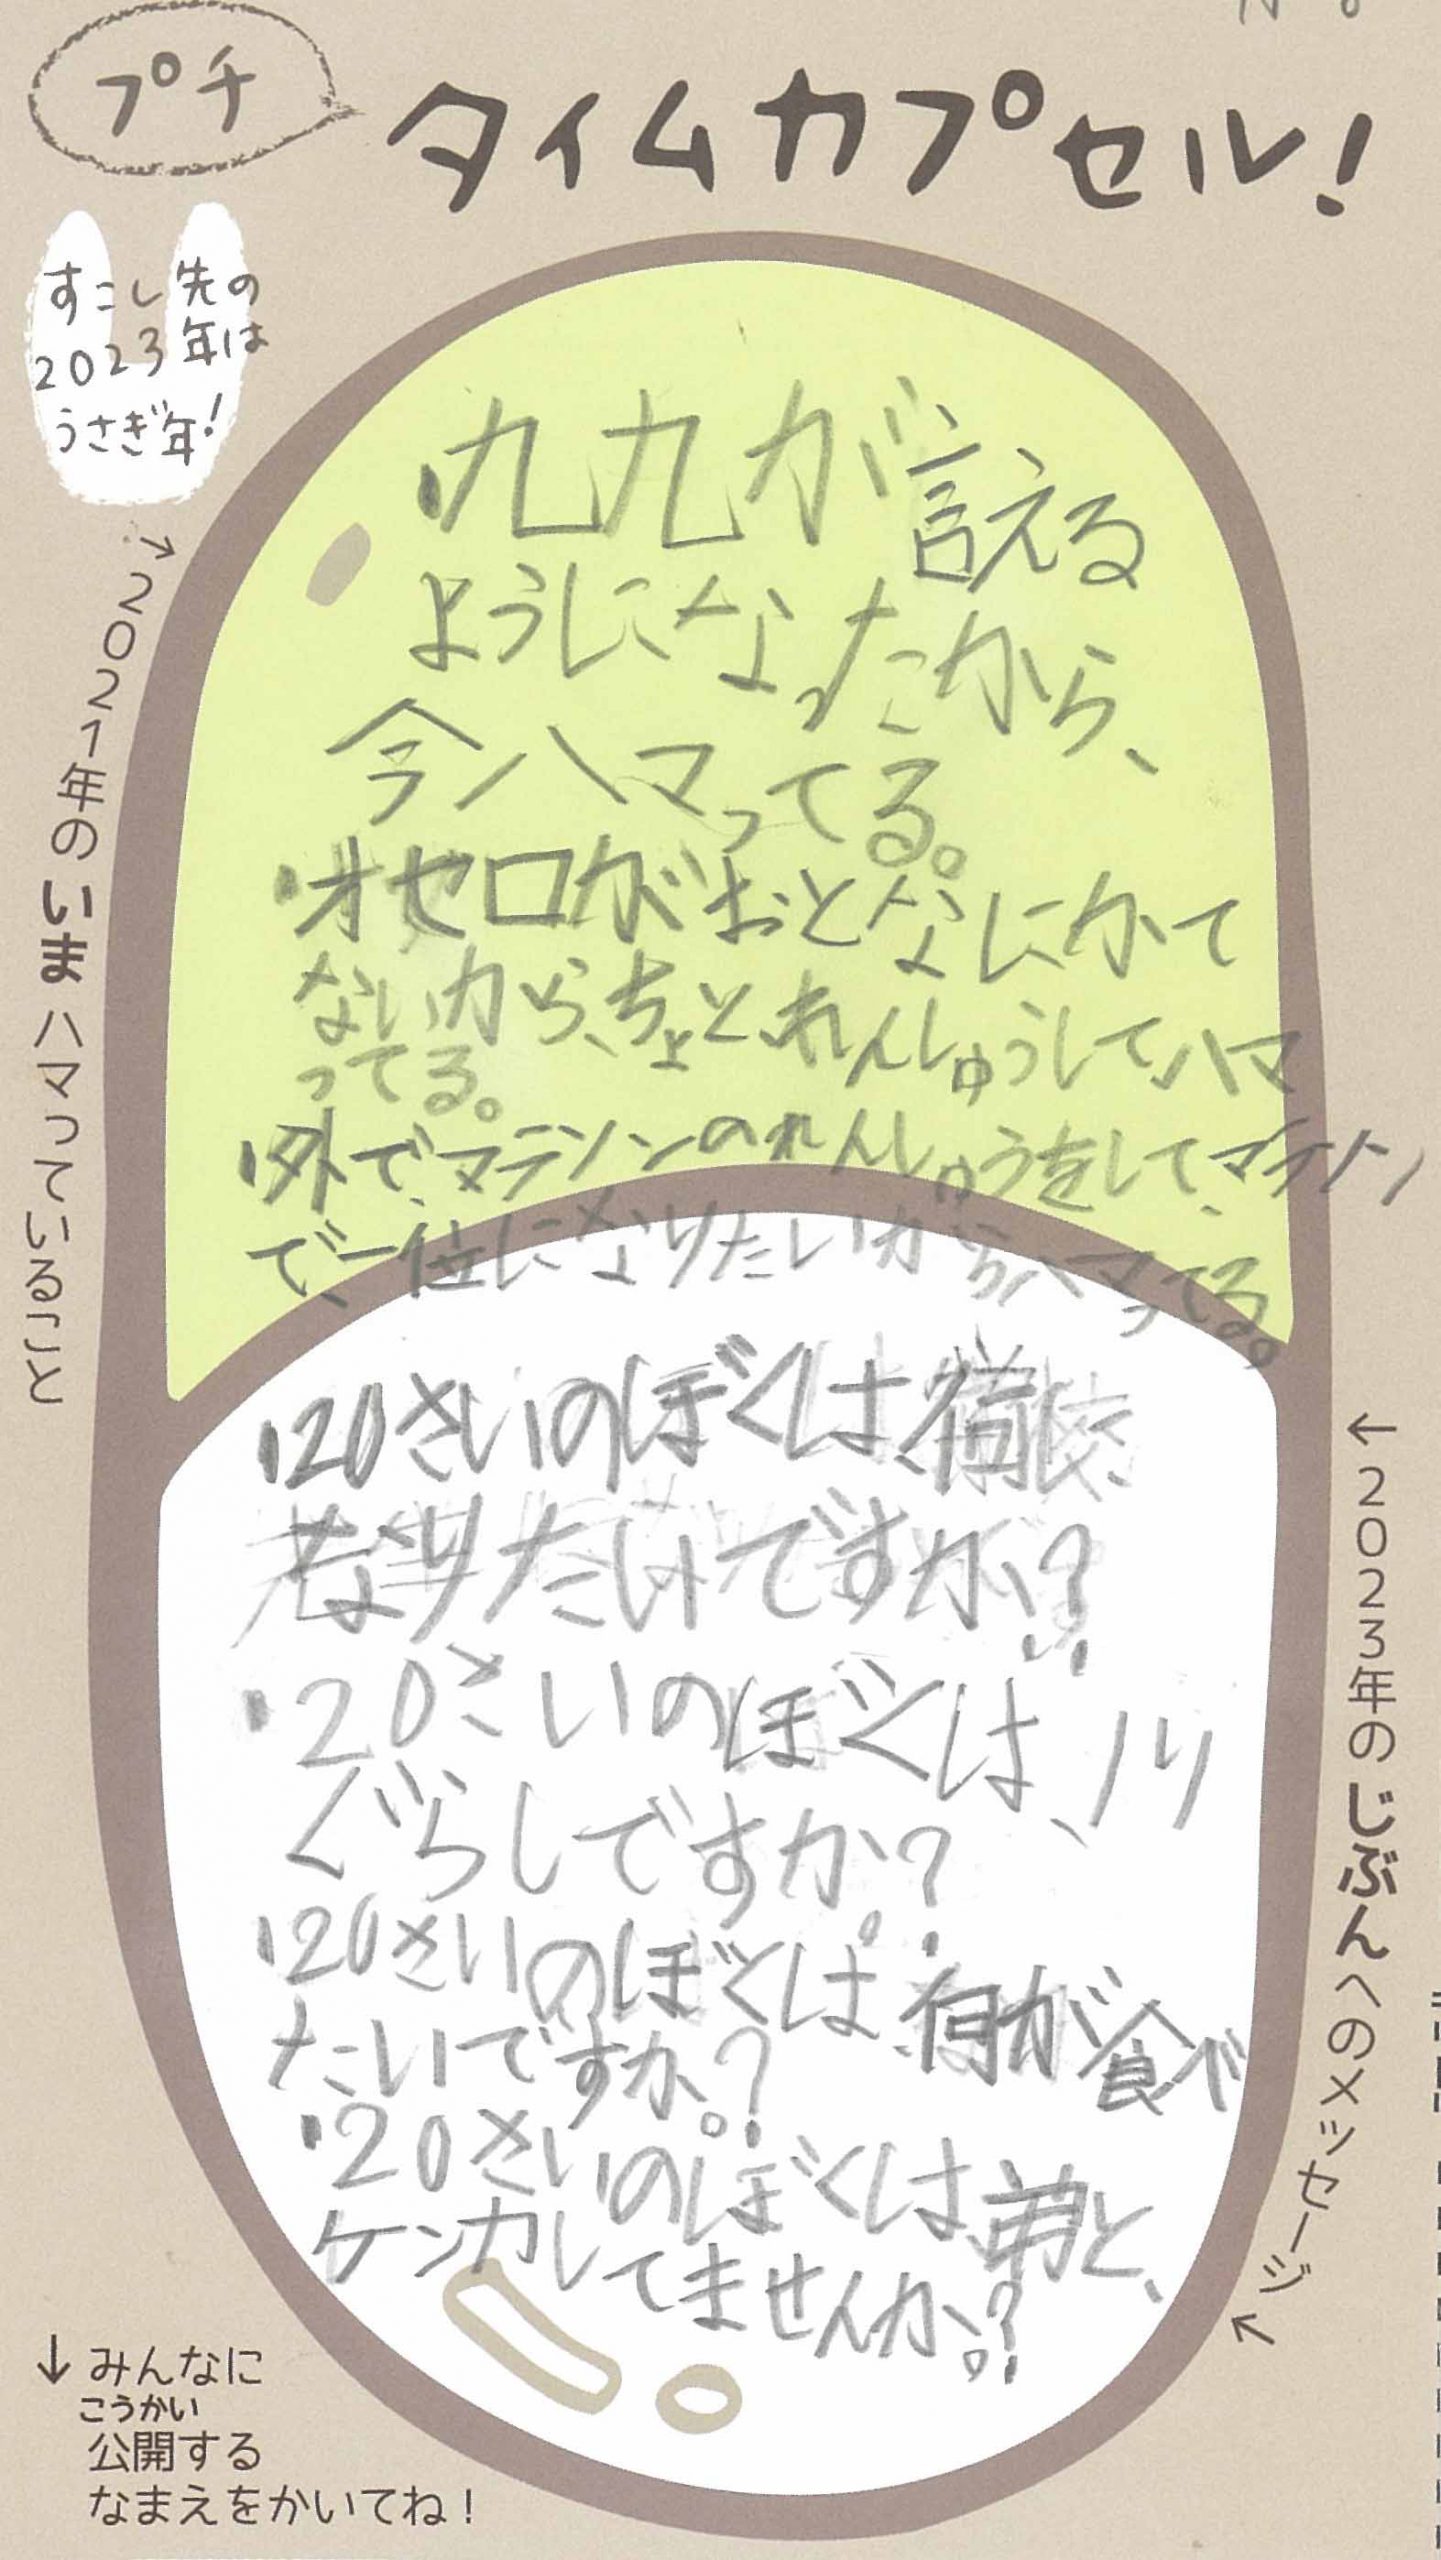 プチ
タイムカプセル!
すこし先の
2023年は
うさぎ年!
→2021年のいまハマっていること
・九九が言える
ようになったから、
今ハマってる。
・オセロがおとなにかて
ないから、ちょと、れんしゅうして、ハマ
ってる。
・外で、マラソンのれんしゅうをして、マラソン
で、一位になりたいからハマってる。
←2023年のじぶんへのメッセージ→
・20さいのぼくは、何
なりたいですか?
・20さいのぼくは、1人
ぐらしですか。?
・20さいのぼくは、何が食べ
たいですか。?
・20さいのぼくは、弟と、
ケンカしてませんか。?
↓みんなに
こうかい
公開する
なまえをかいてね!